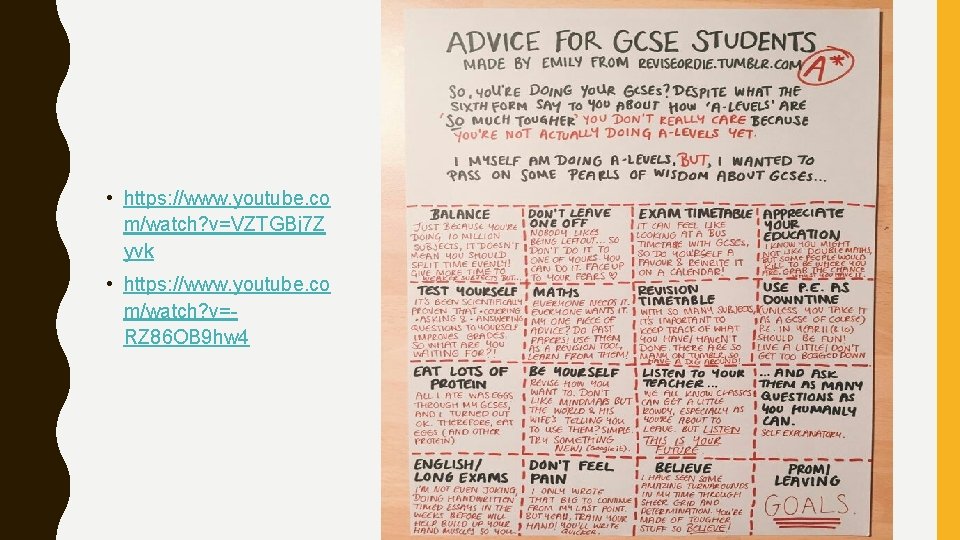 • https: //www. youtube. co
m/watch? v=VZTGBj7 Z
yvk
• https: //www. youtube. co
m/watch? v=-
RZ 86 OB 9 hw 4
ADVICE FOR GCSE STUDENTS
MADE BY EMILY FROM REVISEORDIE.TUMBLR.COM
A*
SO, YOU'RE DOING YOUR GCSES? DESPITE WHAT THE
SIXTH FORM SAY TO YOU ABOUT HOW 'A-LEVELS' ARE
'SO MUCH TOUGHER' YOU DON'T REALLY CARE BECAUSE
YOU'RE NOT ACTUALLY DOING A-LEVELS YET.
I MYSELF AM DOING A-LEVELS, BUT, I WANTED TO
PASS ON SOME PEARLS OF WISDOM ABOUT GCSES...
BALANCE
JUST BECAUSE YOU'RE
DOING 10 MILLION
SUBJECTS, IT DOESN'T
MEAN YOU SHOULD
SPLIT TIME EVENLY!
GIVE MORE TIME TO
WEAKER SUBJECTS BUT...
DON'T LEAVE
ONE OFF
NOBODY LIKES
BEING LEFT OUT... SO
DON'T DO IT TO
ONE OF YOURS. YOU
CAN DO IT. FACE UP
TO YOUR FEARS ♡
EXAM TIMETABLE
IT CAN FEEL LIKE
LOOKING AT A BUS
TIMETABLE WITH GCSES,
SO DO YOURSELF A
FAVOUR & REWRITE IT
ON A CALENDAR!
APPRECIATE
YOUR
EDUCATION
I KNOW YOU MIGHT
NOT LIKE DOUBLE MATHS,
BUT SOME PEOPLE WOULD
KILL TO BE WHERE YOU
ARE. GRAB THE CHANCE
TEST YOURSELF
IT'S BEEN SCIENTIFICALLY
PROVEN THAT
- ASKING & - ANSWERING
QUESTIONS TO YOURSELF
IMPROVES GRADES.
SO WHAT ARE YOU
WAITING FOR?!
MATHS
EVERYONE NEEDS IT.
EVERYONE WANTS IT.
MY ONE PIECE OF
ADVICE? DO PAST
PAPERS! USE THEM
AS A REVISION TOOL,
LEARN FROM THEM!
REVISION
TIMETABLE
WITH SO MANY SUBJECTS,
IT'S IMPORTANT TO
KEEP TRACK OF WHAT
YOU HAVE/HAVEN'T
DONE. THERE ARE SO
MANY ON TUMBLR, SO
HAVE A DIG AROUND!
USE P.E. AS
DOWNTIME
(UNLESS YOU TAKE IT
AS A GCSE OF COURSE)
P.E. IN YEAR 11 (& 10)
SHOULD BE FUN!
LIVE A LITTLE! DON'T
GET TOO BOGGED DOWN
EAT LOTS OF
PROTEIN
ALL I ATE WAS EGGS
THROUGH MY GCSES,
AND I TURNED OUT
OK. THEREFORE, EAT
EGGS (AND OTHER
PROTEIN)
BE YOURSELF
REVISE HOW YOU
WANT TO. DON'T
LIKE MINDMAPS BUT
THE WORLD & HIS
WIFE'S TELLING YOU
TO USE THEM? SIMPLE.
TRY SOMETHING
NEW! (Google it).
LISTEN TO YOUR
TEACHER...
WE ALL KNOW CLASSES
CAN GET A LITTLE
ROWDY, ESPECIALLY AS
YOU'RE ABOUT TO
LEAVE. BUT LISTEN
THIS IS YOUR
FUTURE.
... AND ASK
THEM AS MANY
QUESTIONS AS
YOU HUMANLY
CAN.
SELF EXPLANATORY.
ENGLISH/
LONG EXAMS
I'M NOT EVEN JOKING,
DOING HANDWRITTEN
TIMED ESSAYS IN THE
WEEKS BEFORE WILL
HELP BUILD UP YOUR
HAND MUSCLES SO YOU..
DON'T FEEL
PAIN
I ONLY WROTE
THAT BIG TO CONTINUE
FROM MY LAST POINT.
BUT YEAH, TRAIN YOUR
HAND! YOU'LL WRITE
QUICKER.
BELIEVE
I HAVE SEEN SOME
AMAZING TURNAROUNDS
IN MY TIME THROUGH
SHEER GRID AND
DETERMINATION. YOU'RE
MADE OF TOUGHER
STUFF SO BELIEVE!
PROM!
LEAVING
GOALS.